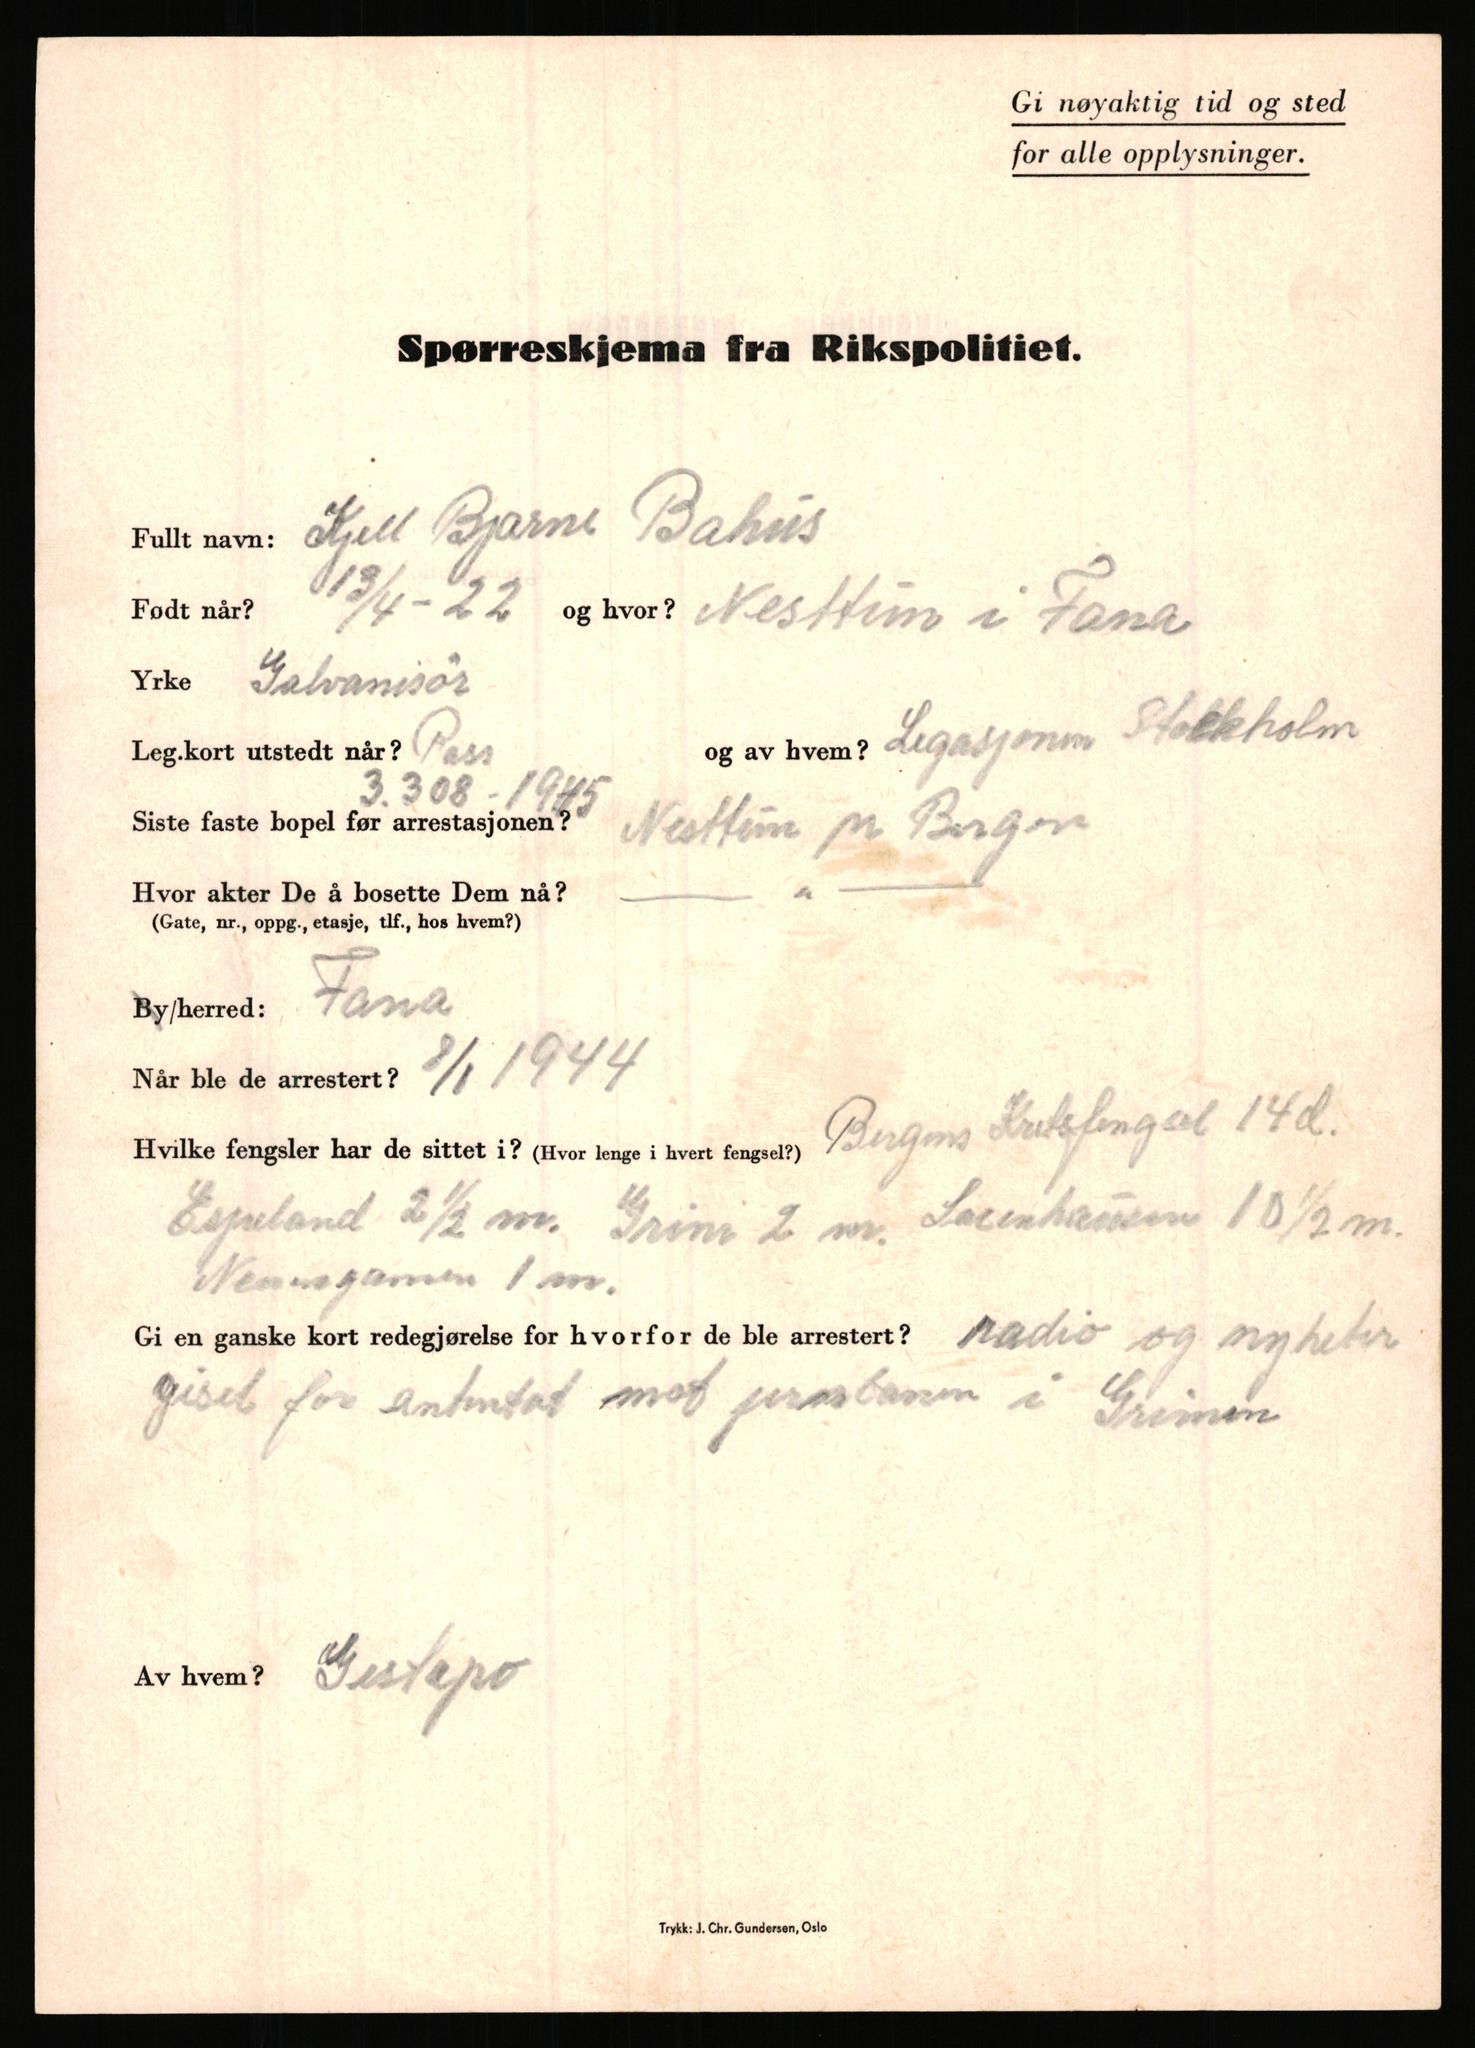 Gi nøyaktig tid og sted
for alle opplysninger.
Spørreskjema fra Rikspolitiet.
Fullt navn: Kjell Bjarne Bahus
Født når? 13/4-22 og hvor? Nesttun i Fana
Yrke Galvanisör
Leg.kort utstedt når? Pass og av hvem? Legasjonen Stockholm
3.308-1945
Siste faste bopel før arrestasjonen? Nesttun pr Bergen
Hvor akter De å bosette Dem nå? — " —
(Gate, nr., oppg., etasje, tlf., hos hvem?)
By/herred: Fana
Når ble de arrestert? 8/1 1944
Hvilke fengsler har de sittet i? (Hvor lenge i hvert fengsel?) Bergens Kretsfengsel 14 d.
Espeland 2 1/2 m. Grini 2 m. Sacenhausen 10 1/2 m.
1 m.
Gi en ganske kort redegjørelse for hvorfor de ble arrestert? radio og nyheter
gisel for mot i Grimen
Av hvem? Gestapo
Trykk: J. Chr. Gundersen, Oslo